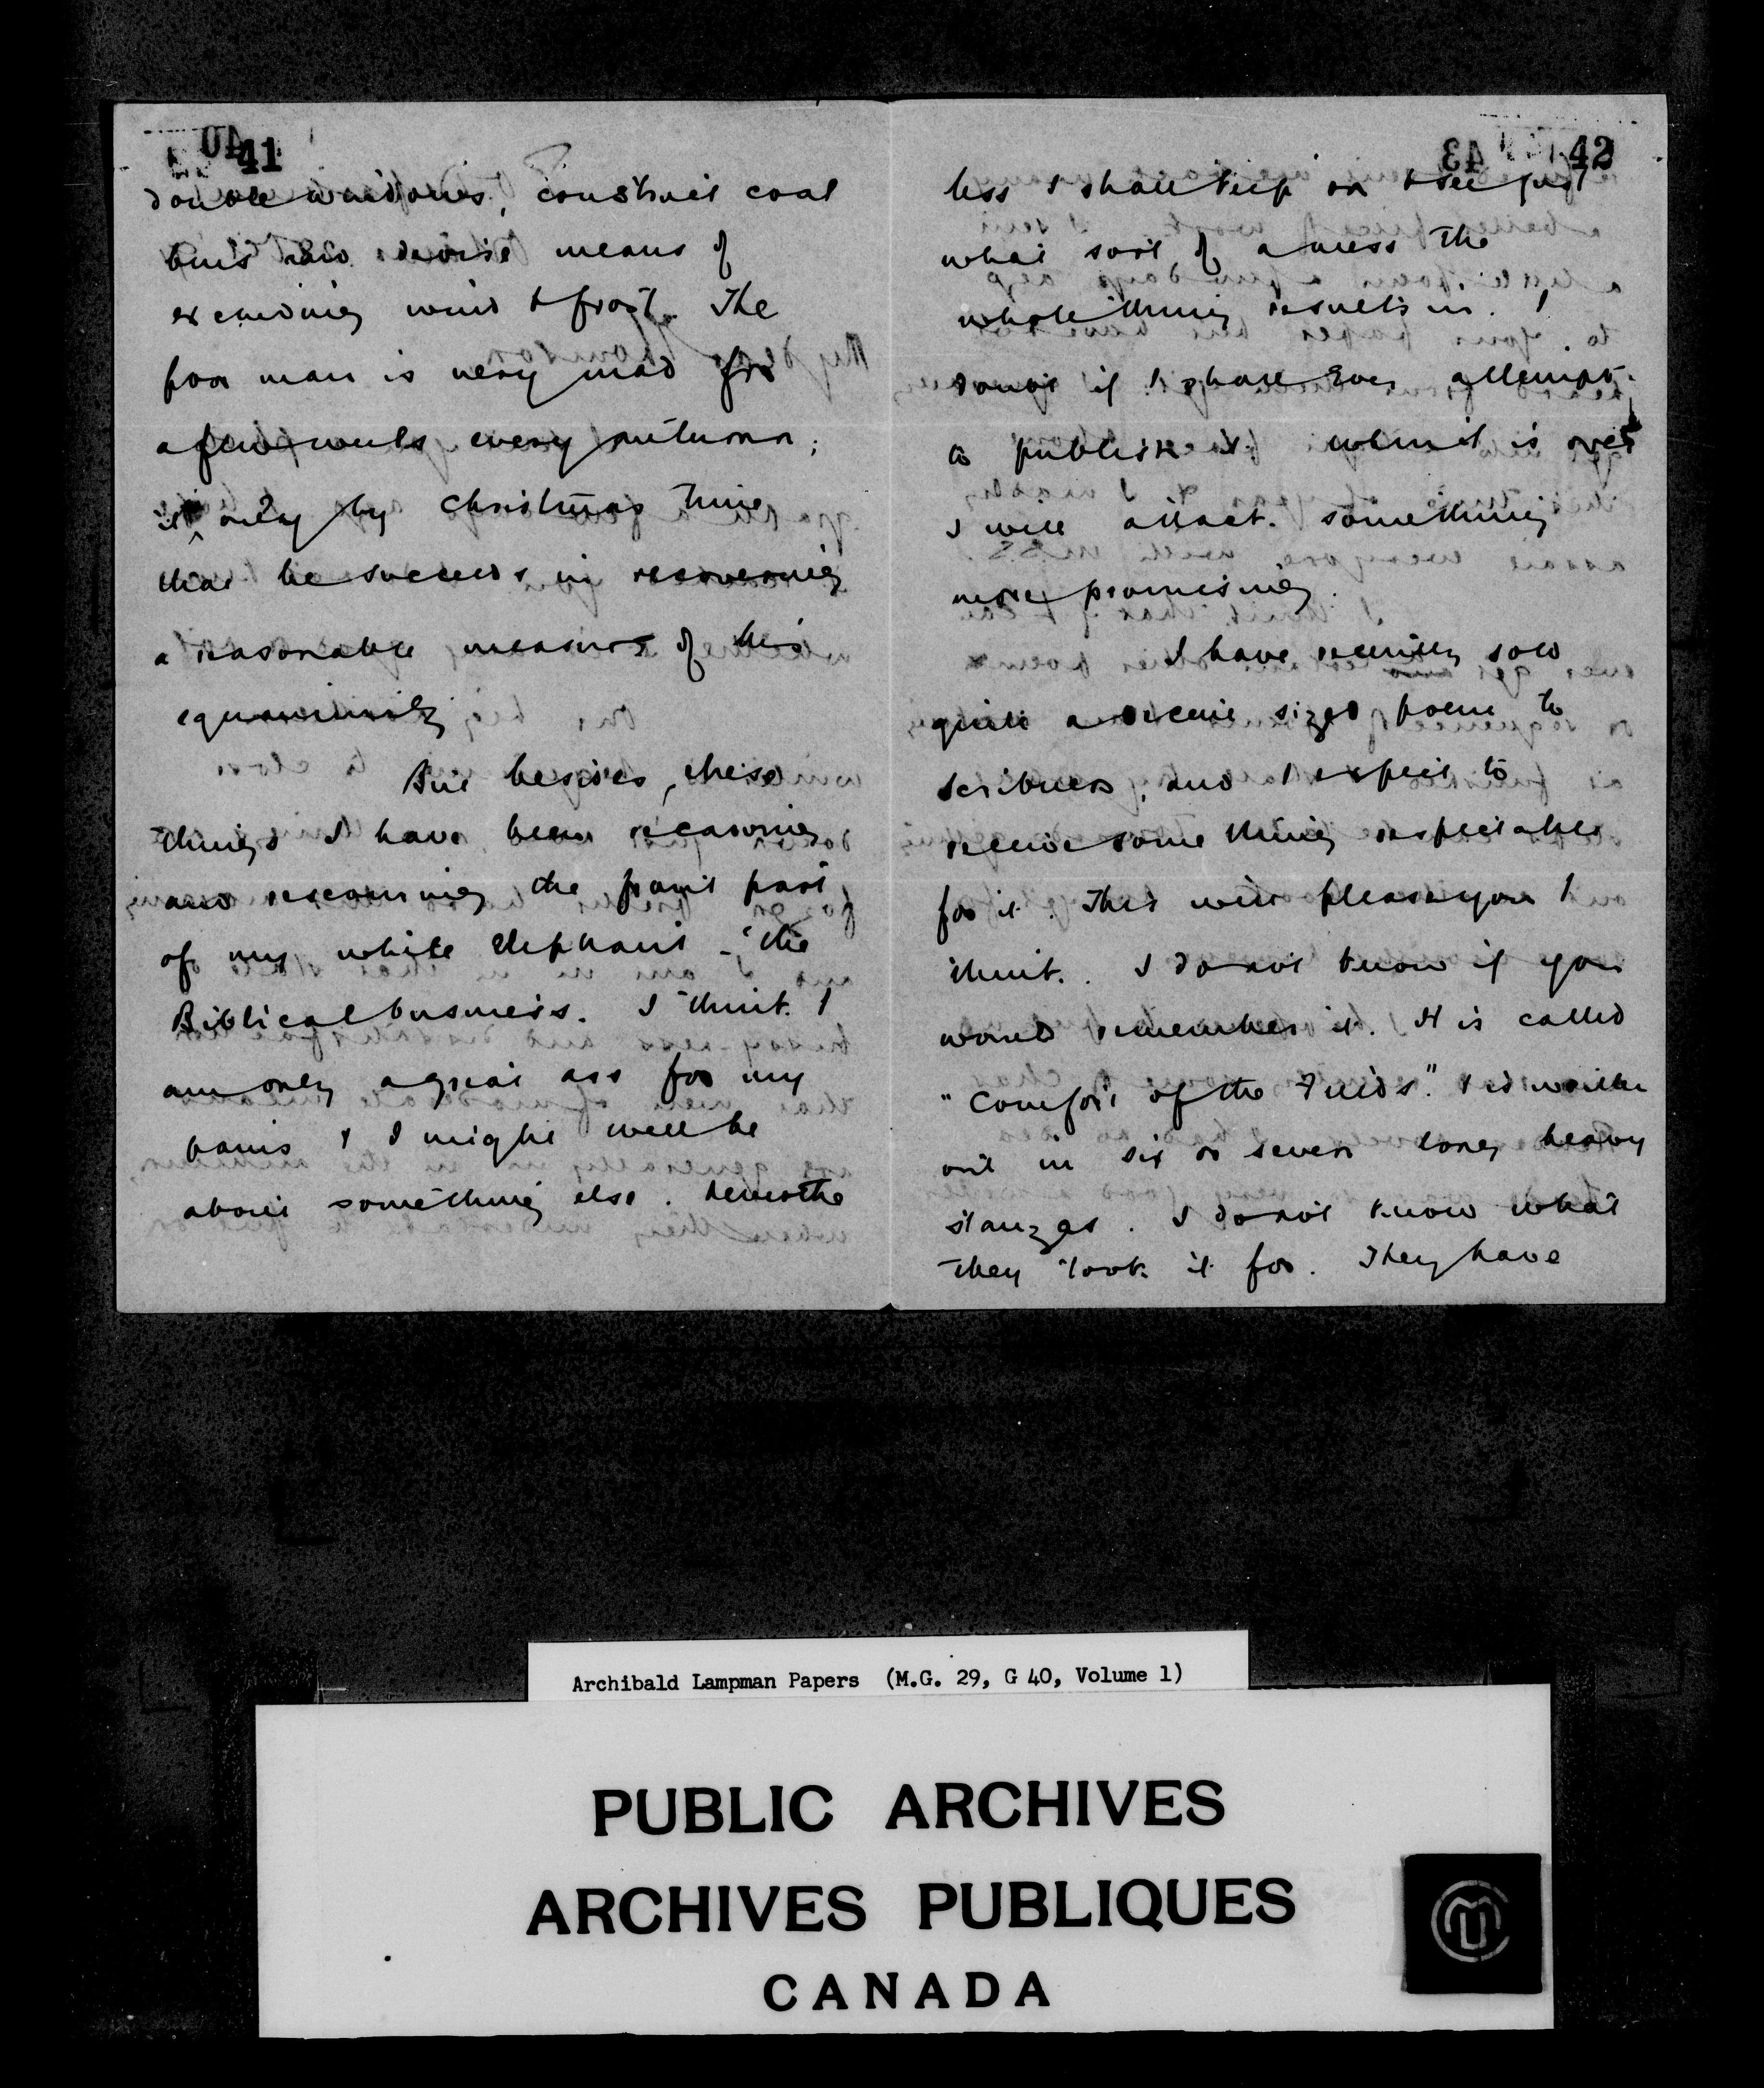 41
double windows, construct coal
bins and devise means of
excluding wind & frost. The
poor man is very mad for
a few weeks every autumn;
it is only by Christmas time
that he succeeds in recovering
a reasonable measure of his
equanimity
But besides, these
things I have been recasting
and rescouring the front part
of my white elephant – the
Biblical business. I think I
am only a great ass for my
pains & I might well be
about something else. Neverthe
42
less I shall keep on & see just
what sort of a mess the
whole thing results in. I
doubt if I shall ever attempt
to publish it. When it is over
I will attack something
more promising.
I have recently sold
quite a decent sized poem to
Scribners, and I expect to
receive something respectable
for it. That will please you I
think. I do not know if you
would remember it. It is called
"Comfort of the Fields". I is written
out in six or seven long heavy
stanzas. I do not know what
they took it for. They have
Archibald Lampman Papers (M.G. 29, G 40, Volume 1)
PUBLIC ARCHIVES
ARCHIVES PUBLIQUES
CANADA